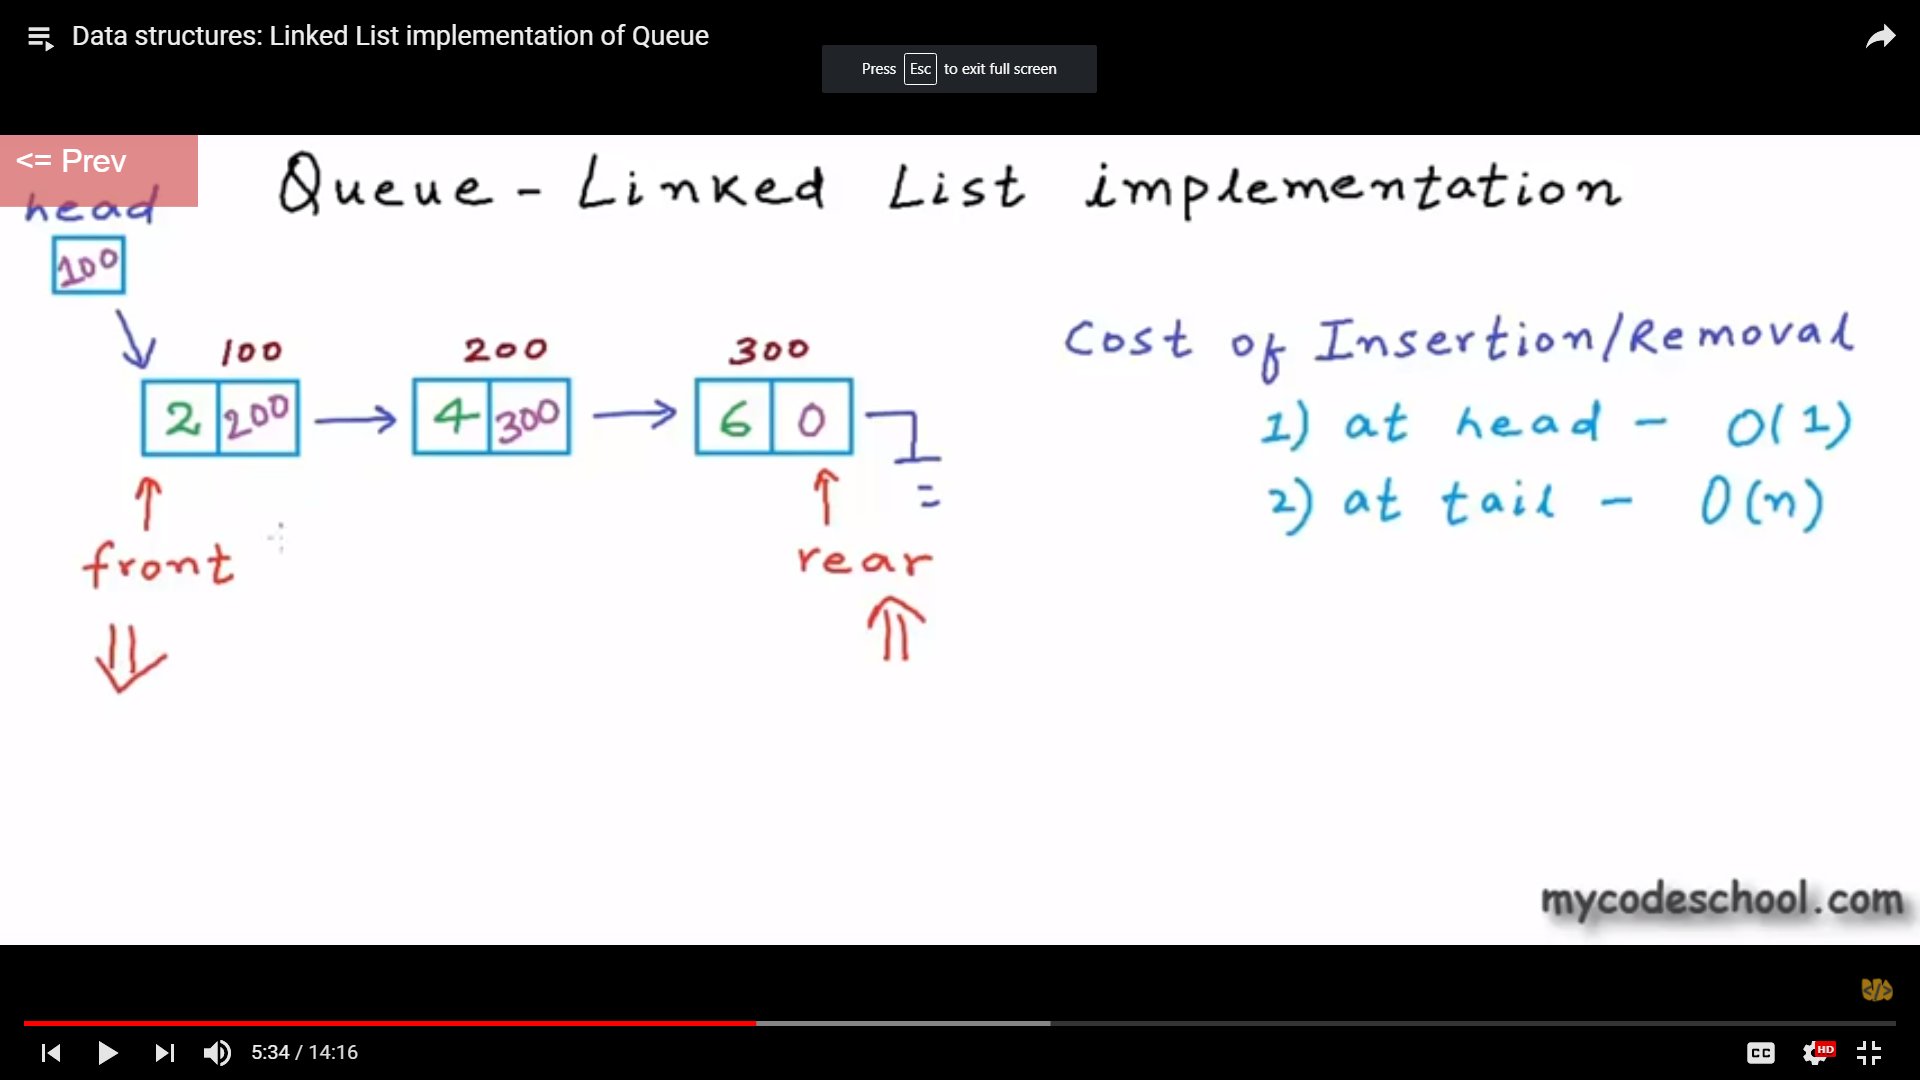 Data structures: Linked List implementation of Queue
Press Esc to exit full screen
<= Prev
Queue - Linked List implementation
head
100
100 200 300
2 200 4 300 6 0
front rear
Cost of Insertion/Removal
1) at head - O(1)
2) at tail - O(n)
mycodeschool.com
</>
5:34 / 14:16
CC HD